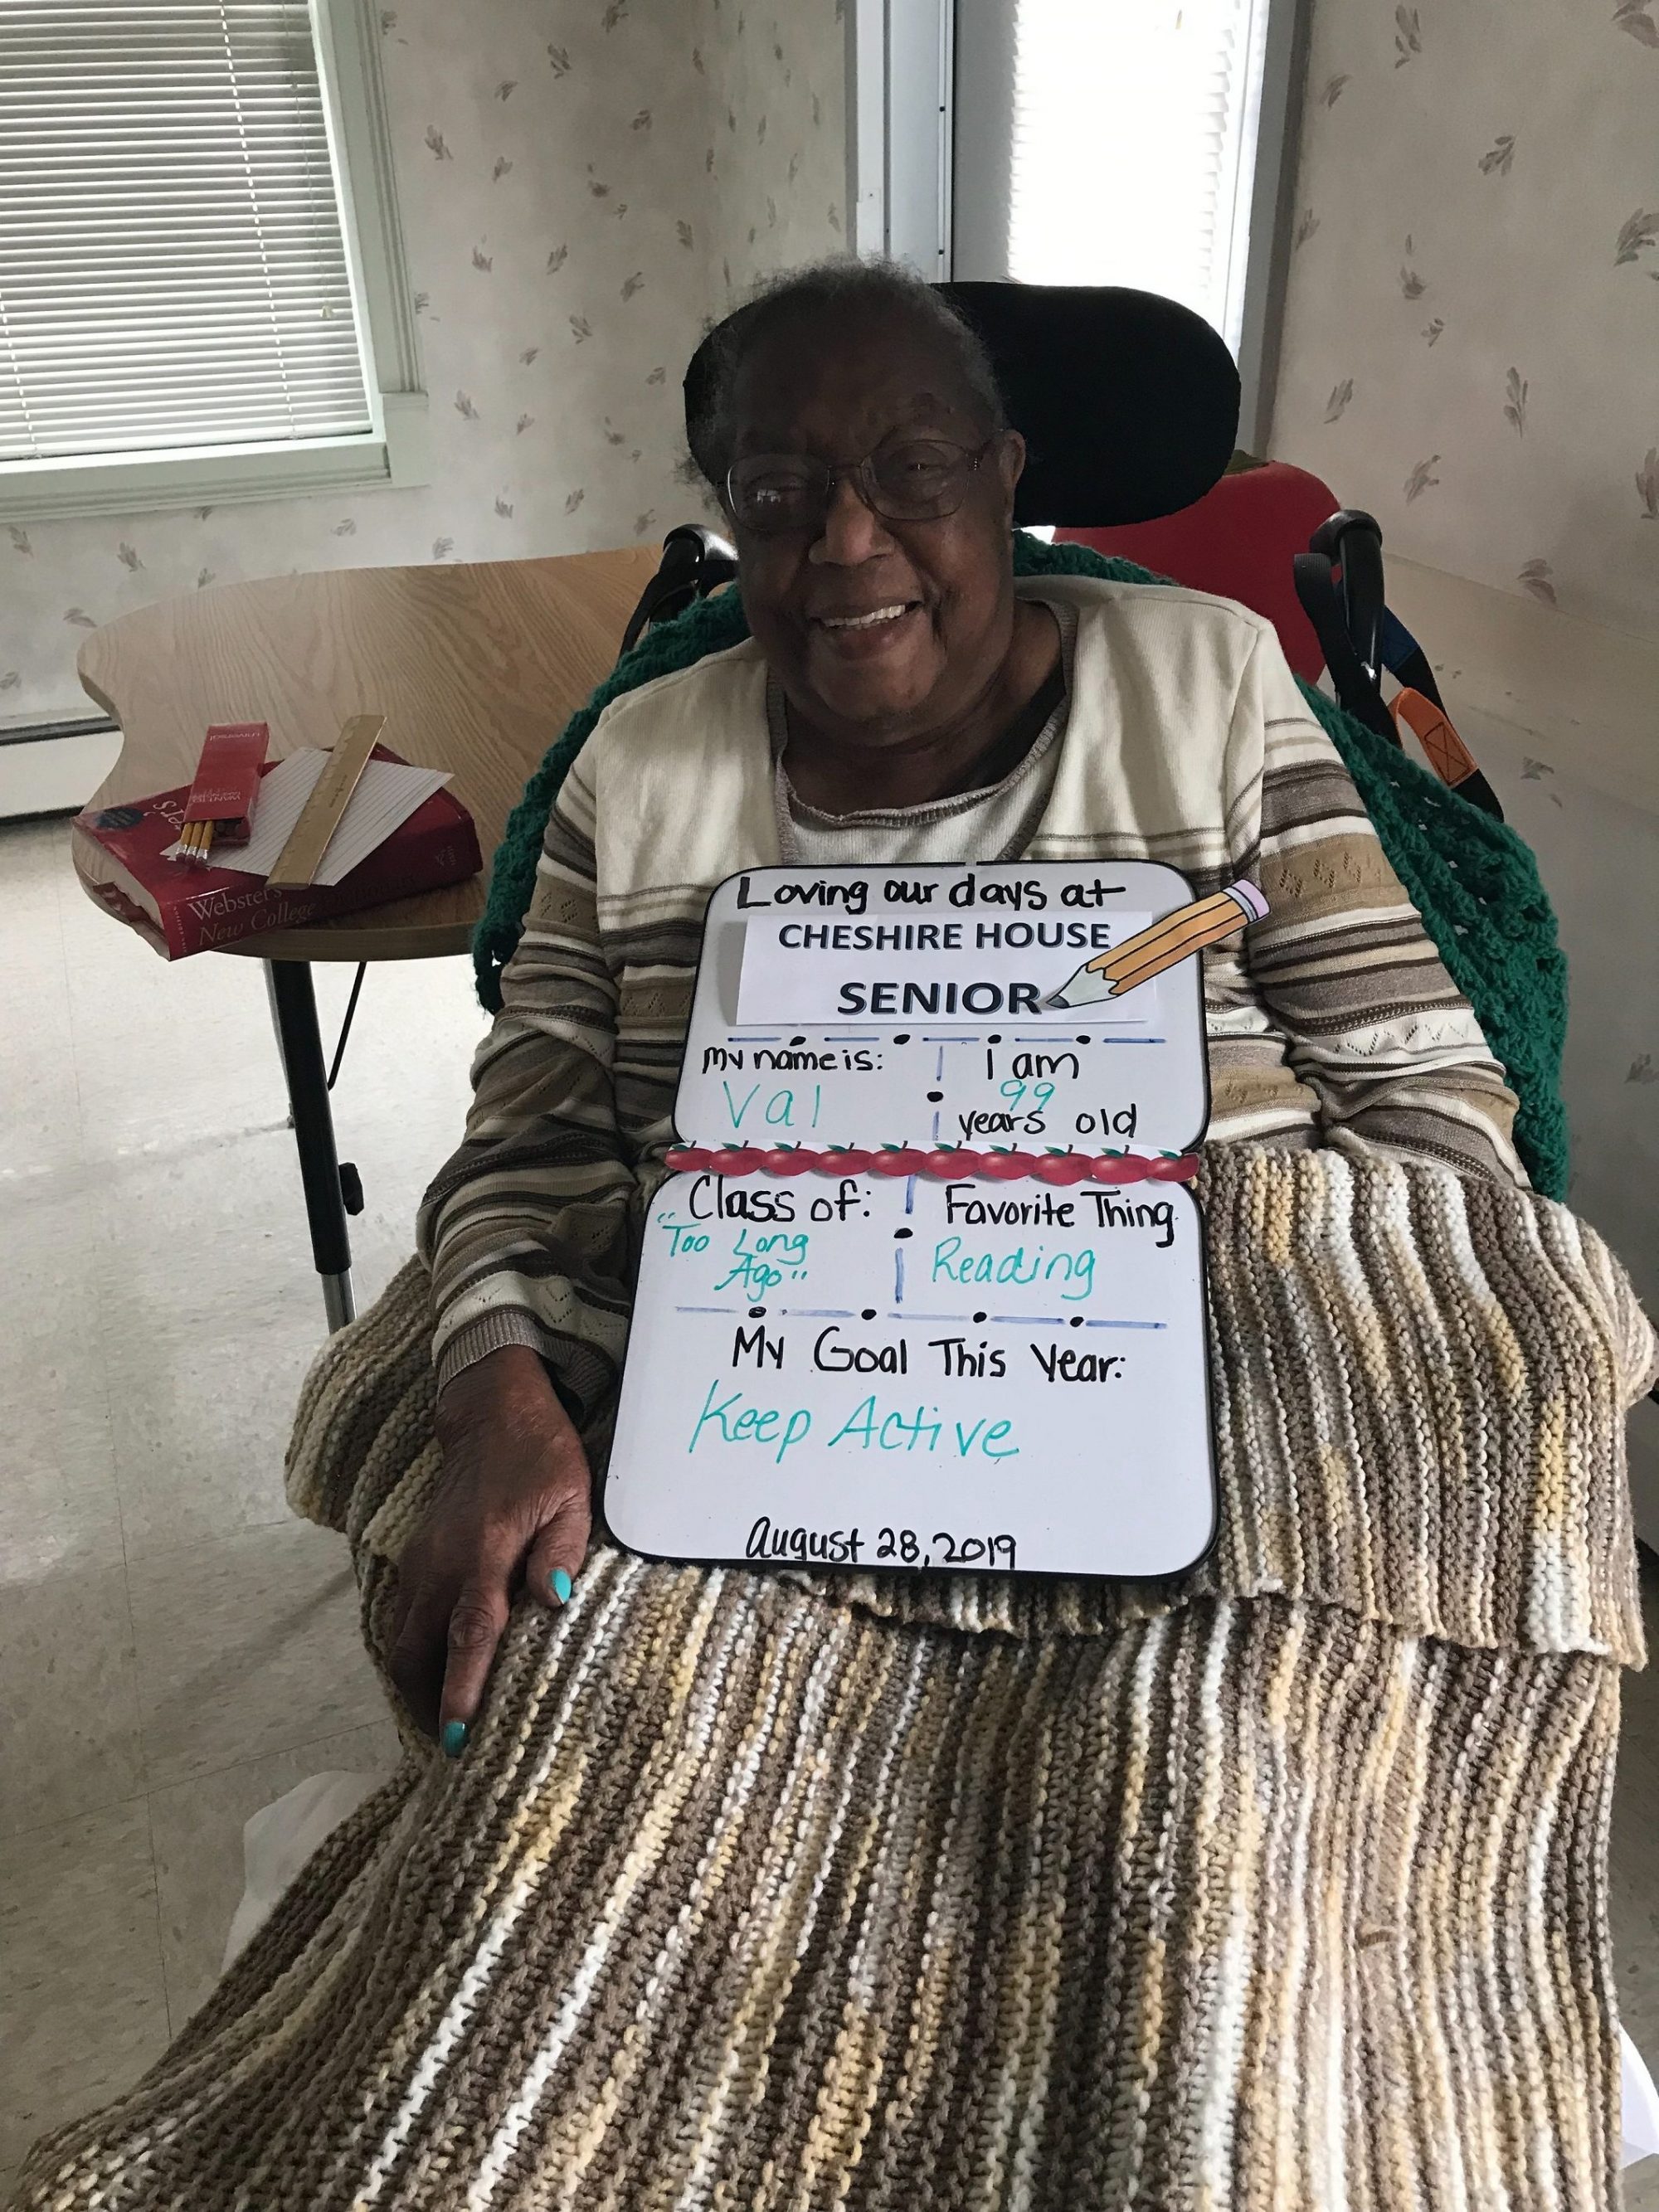 Loving our days at
CHESHIRE HOUSE
SENIOR
My name is:
Val
I am
99
years old
Class of:
"Too Long
Ago"
Favorite Thing
Reading
My Goal This Year:
Keep Active
August 28, 2019
Webster's
New College